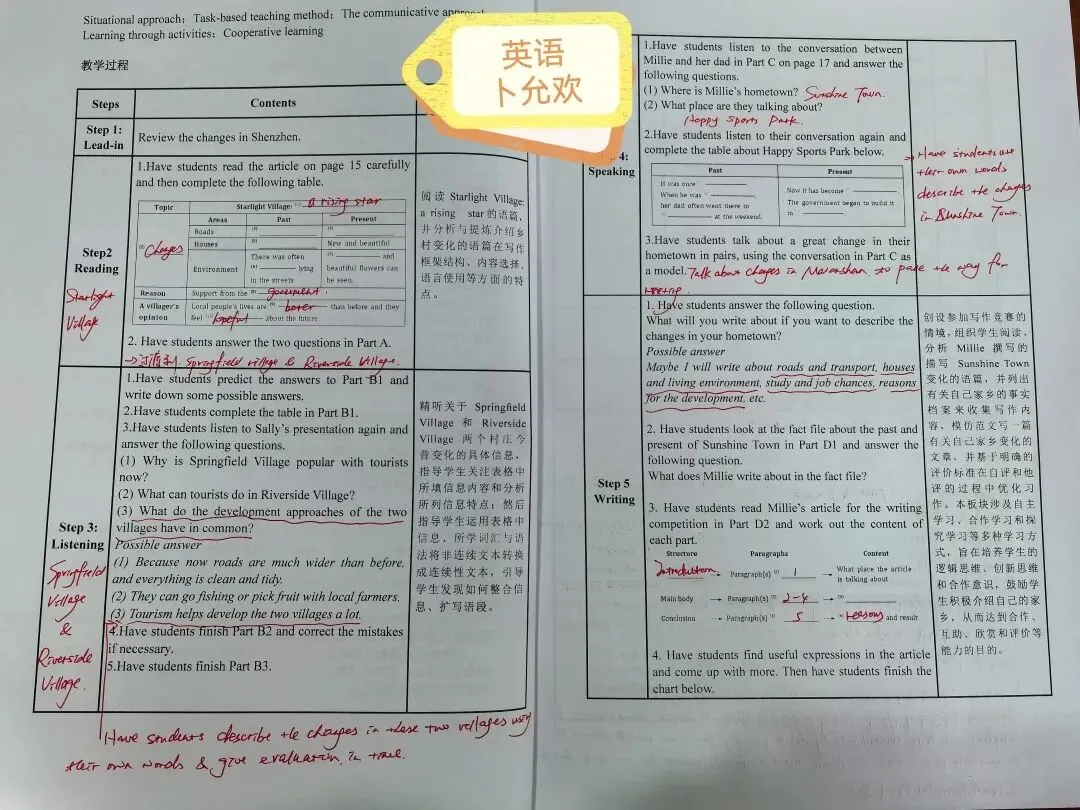 Situational approach; Task-based teaching method; The communicative approach
Learning through activities; Cooperative learning
英语
卜允欢
教学过程
Steps
Contents
Step 1:
Lead-in
Review the changes in Shenzhen.
Step2
Reading
Starlight
Village
1.Have students read the article on page 15 carefully
and then complete the following table.
Topic
Starlight Village: (1) a rising star
Areas Past Present
(2) Changes
Roads (3) (4)
Houses (5) New and beautiful
Environment
There was often
(6) lying
in the streets
(7) and
beautiful flowers can
be seen.
Reason
Support from the (8) government
A villager's
opinion
Local people's lives are (9) better than before and they
feel (10) hopeful about the future.
2. Have students answer the two questions in Part A.
Springfield village & Riverside Village.
阅读 Starlight Village:
a rising star 的语篇,
并分析与提炼介绍乡
村变化的语篇在写作
框架结构、内容选择、
语言使用等方面的特
点。
Step 3:
Listening
Springfield
Village
&
Riverside
Village.
1.Have students predict the answers to Part B1 and
write down some possible answers.
2.Have students complete the table in Part B1.
3.Have students listen to Sally's presentation again and
answer the following questions.
(1) Why is Springfield Village popular with tourists
now?
(2) What can tourists do in Riverside Village?
(3) What do the development approaches of the two
villages have in common?
Possible answer
(1) Because now roads are much wider than before,
and everything is clean and tidy.
(2) They can go fishing or pick fruit with local farmers.
(3) Tourism helps develop the two villages a lot.
4.Have students finish Part B2 and correct the mistakes
if necessary.
5.Have students finish Part B3.
精听关于 Springfield
Village 和 Riverside
Village 两个村庄今
昔变化的具体信息,
指导学生关注表格中
所填信息内容和分析
所列信息特点;然后
指导学生运用表格中
信息、所学词汇与语
法将非连续文本转换
成连续性文本,引导
学生发现如何整合信
息、扩写语段。
Have students describe the changes in these two villages using
their own words & give evaluation in time.
4:
Speaking
1.Have students listen to the conversation between
Millie and her dad in Part C on page 17 and answer the
following questions.
(1) Where is Millie's hometown? Sunshine Town.
(2) What place are they talking about?
Happy Sports Park.
2.Have students listen to their conversation again and
complete the table about Happy Sports Park below.
Past
Present
It was once
When he was
her dad often went there to
at the weekend.
Now it has become
The government began to build it
in
3.Have students talk about a great change in their
hometown in pairs, using the conversation in Part C as
a model. Talk about changes in to pave the way for
writing.
Have students use
their own words
describe the changes
in Sunshine Town.
Step 5
Writing
1. Have students answer the following question.
What will you write about if you want to describe the
changes in your hometown?
Possible answer
Maybe I will write about roads and transport, houses
and living environment, study and job chances, reasons
for the development, etc.
2. Have students look at the fact file about the past and
present of Sunshine Town in Part D1 and answer the
following question.
What does Millie write about in the fact file?
3. Have students read Millie's article for the writing
competition in Part D2 and work out the content of
each part.
Structure Paragraphs Content
Introduction Paragraph(s) 1 What place the article
is talking about
Main body Paragraph(s) 2-4
Conclusion Paragraph(s) 5 reasons and result
4. Have students find useful expressions in the article
and come up with more. Then have students finish the
chart below.
创设参加写作竞赛的
情境,组织学生阅读、
分析 Millie 撰写的
描写 Sunshine Town
变化的语篇,并列出
有关自己家乡的事实
档案来收集写作内
容,模仿范文写一篇
有关自己家乡变化的
文章,并基于明确的
评价标准在自评和他
评的过程中优化习
作。本板块涉及自主
学习、合作学习和探
究学习等多种学习方
式,旨在培养学生的
逻辑思维、创新思维
和合作意识,鼓励学
生积极介绍自己的家
乡,从而达到合作、
互助、欣赏和评价等
能力的目的。